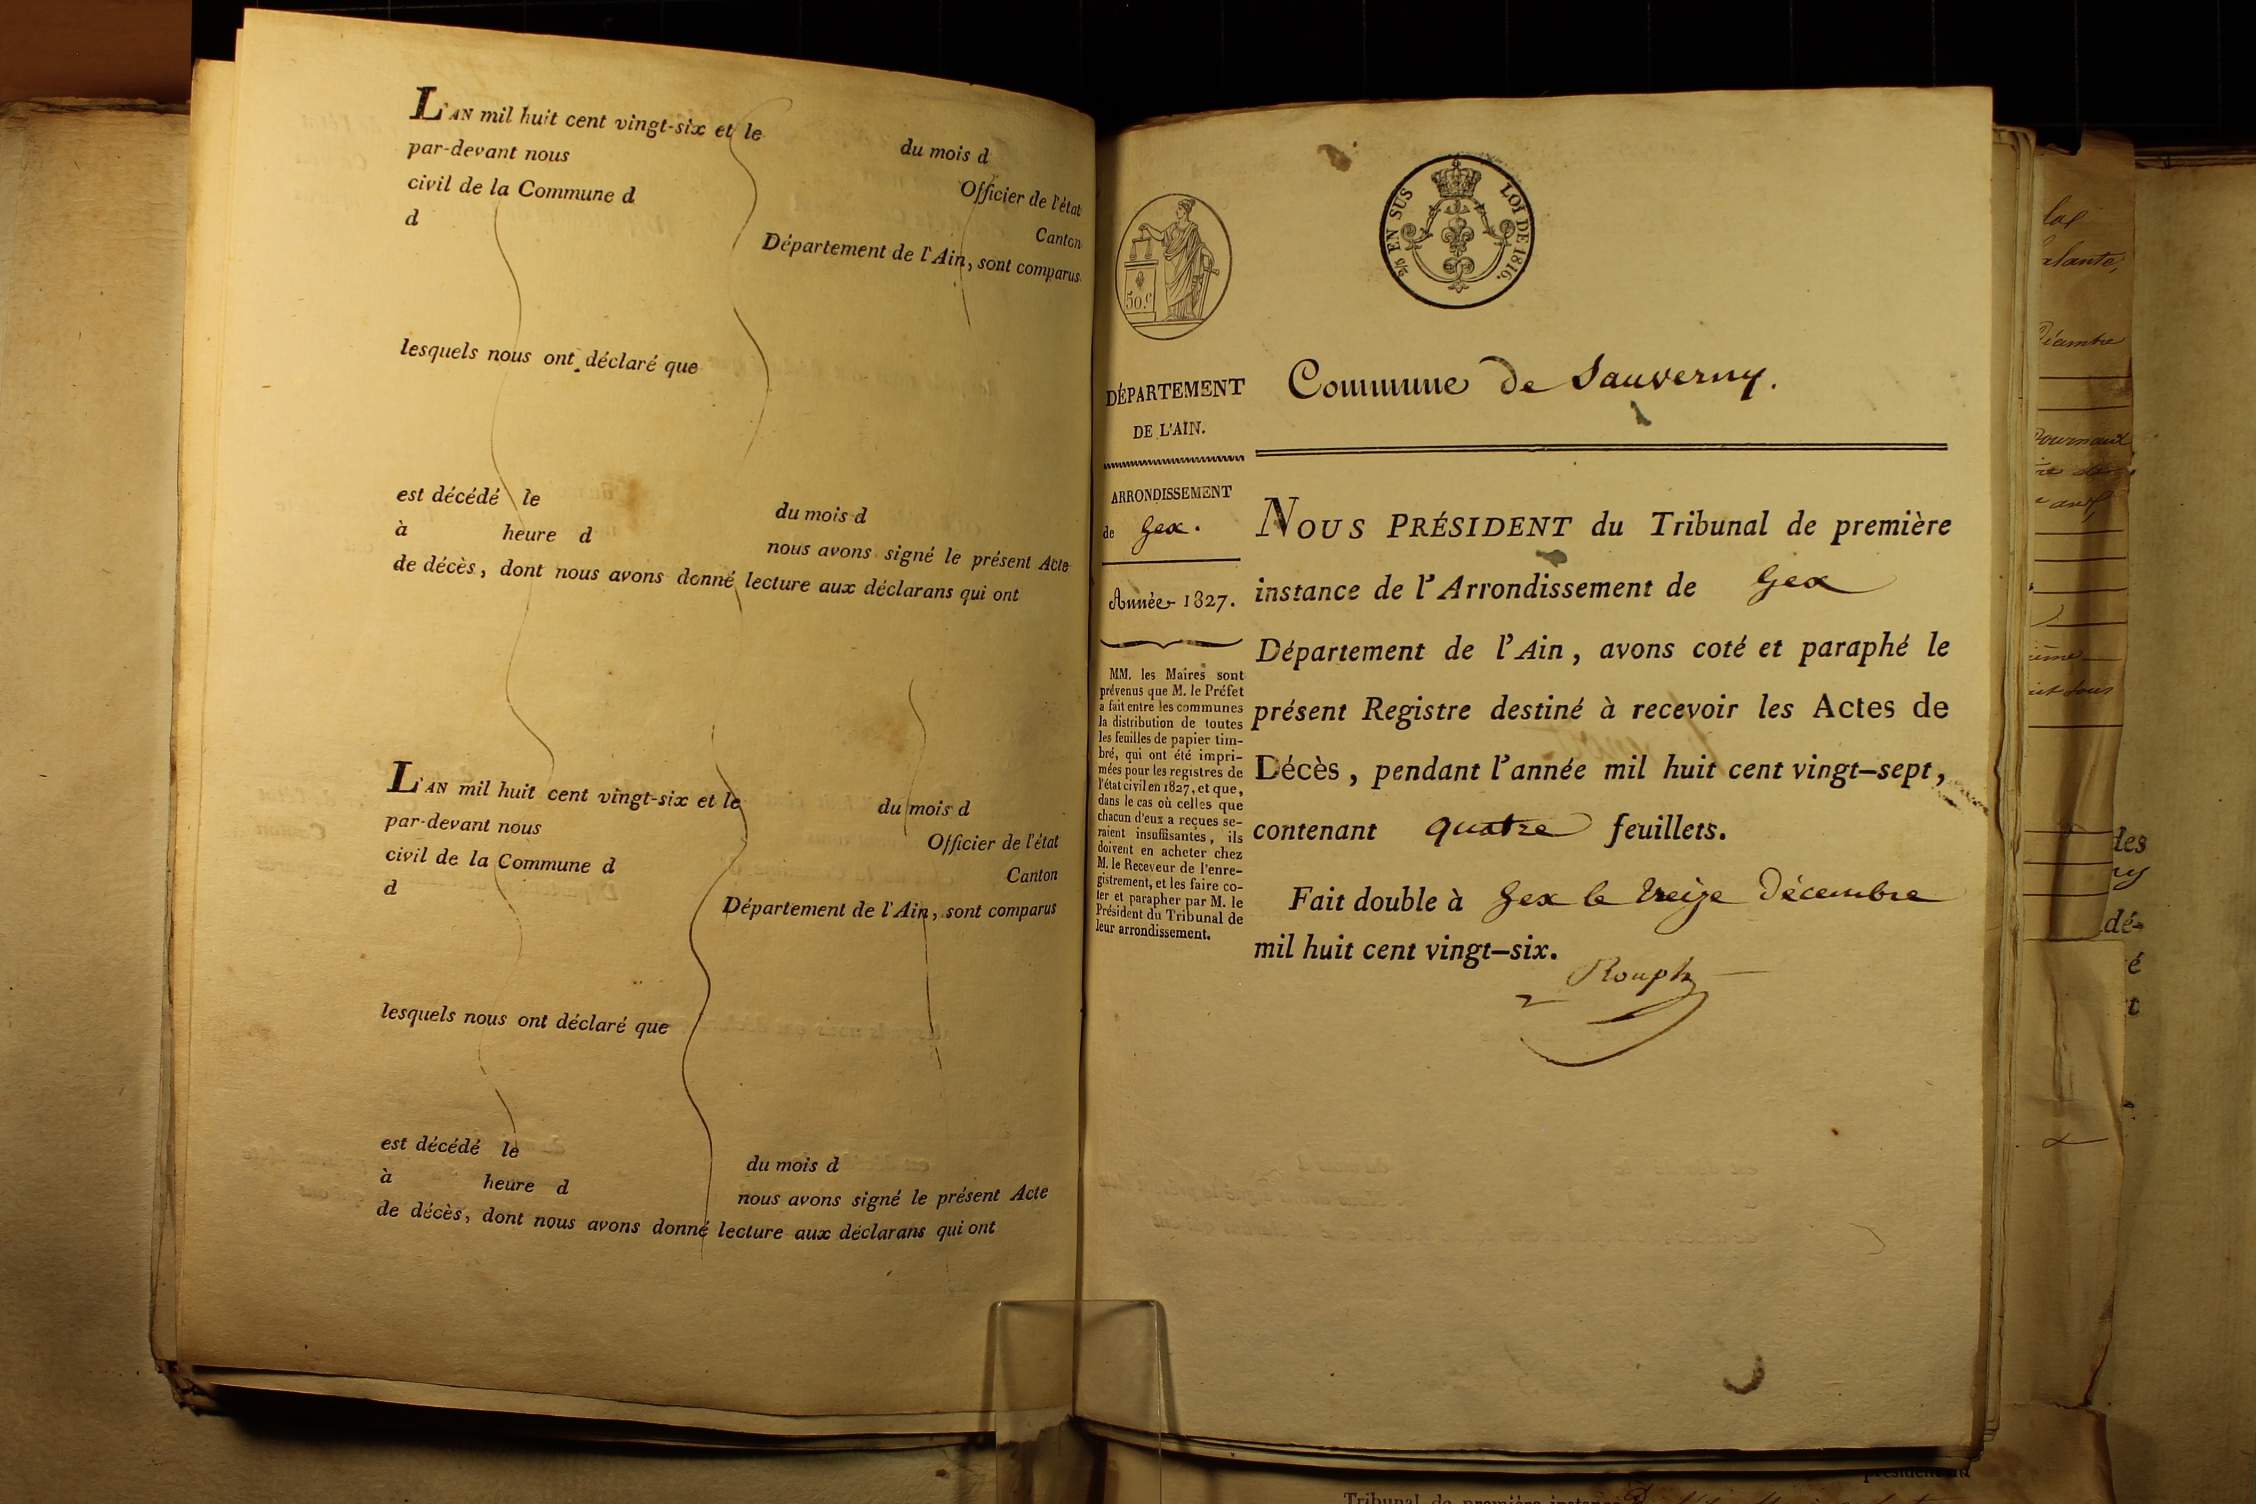 L'AN mil huit cent vingt-six et le du mois d
par-devant nous Officier de l'état
civil de la Commune d Canton
d Département de l'Ain, sont comparus
lesquels nous ont déclaré que
est décédé le du mois d
à heure d nous avons signé le présent Acte
de décès, dont nous avons donné lecture aux déclarans qui ont
L'AN mil huit cent vingt-six et le du mois d
par-devant nous Officier de l'état
civil de la Commune d Canton
d Département de l'Ain, sont comparus
lesquels nous ont déclaré que
est décédé le du mois d
à heure d nous avons signé le présent Acte
de décès, dont nous avons donné lecture aux déclarans qui ont
50 c
EN SUS LOI DE 1816.
DÉPARTEMENT
DE L'AIN.
ARRONDISSEMENT
de Gex.
Année 1827.
MM. les Maires sont
prévenus que M. le Préfet
a fait entre les communes
la distribution de toutes
les feuilles de papier tim-
bré, qui ont été impri-
mées pour les registres de
l'état civil en 1827, et que,
dans le cas où celles que
chacun d'eux a reçues se-
raient insuffisantes, ils
doivent en acheter chez
M. le Receveur de l'enre-
gistrement, et les faire co-
ter et parapher par M. le
Président du Tribunal de
leur arrondissement.
Commune de Sauverny.
NOUS PRÉSIDENT du Tribunal de première
instance de l'Arrondissement de Gex
Département de l'Ain, avons coté et paraphé le
présent Registre destiné à recevoir les Actes de
Décès, pendant l'année mil huit cent vingt-sept,
contenant quatre feuillets.
Fait double à Gex le treize Décembre
mil huit cent vingt-six.
Rouph
Décembre
des
dé-
é
t
Tribunal de première instance